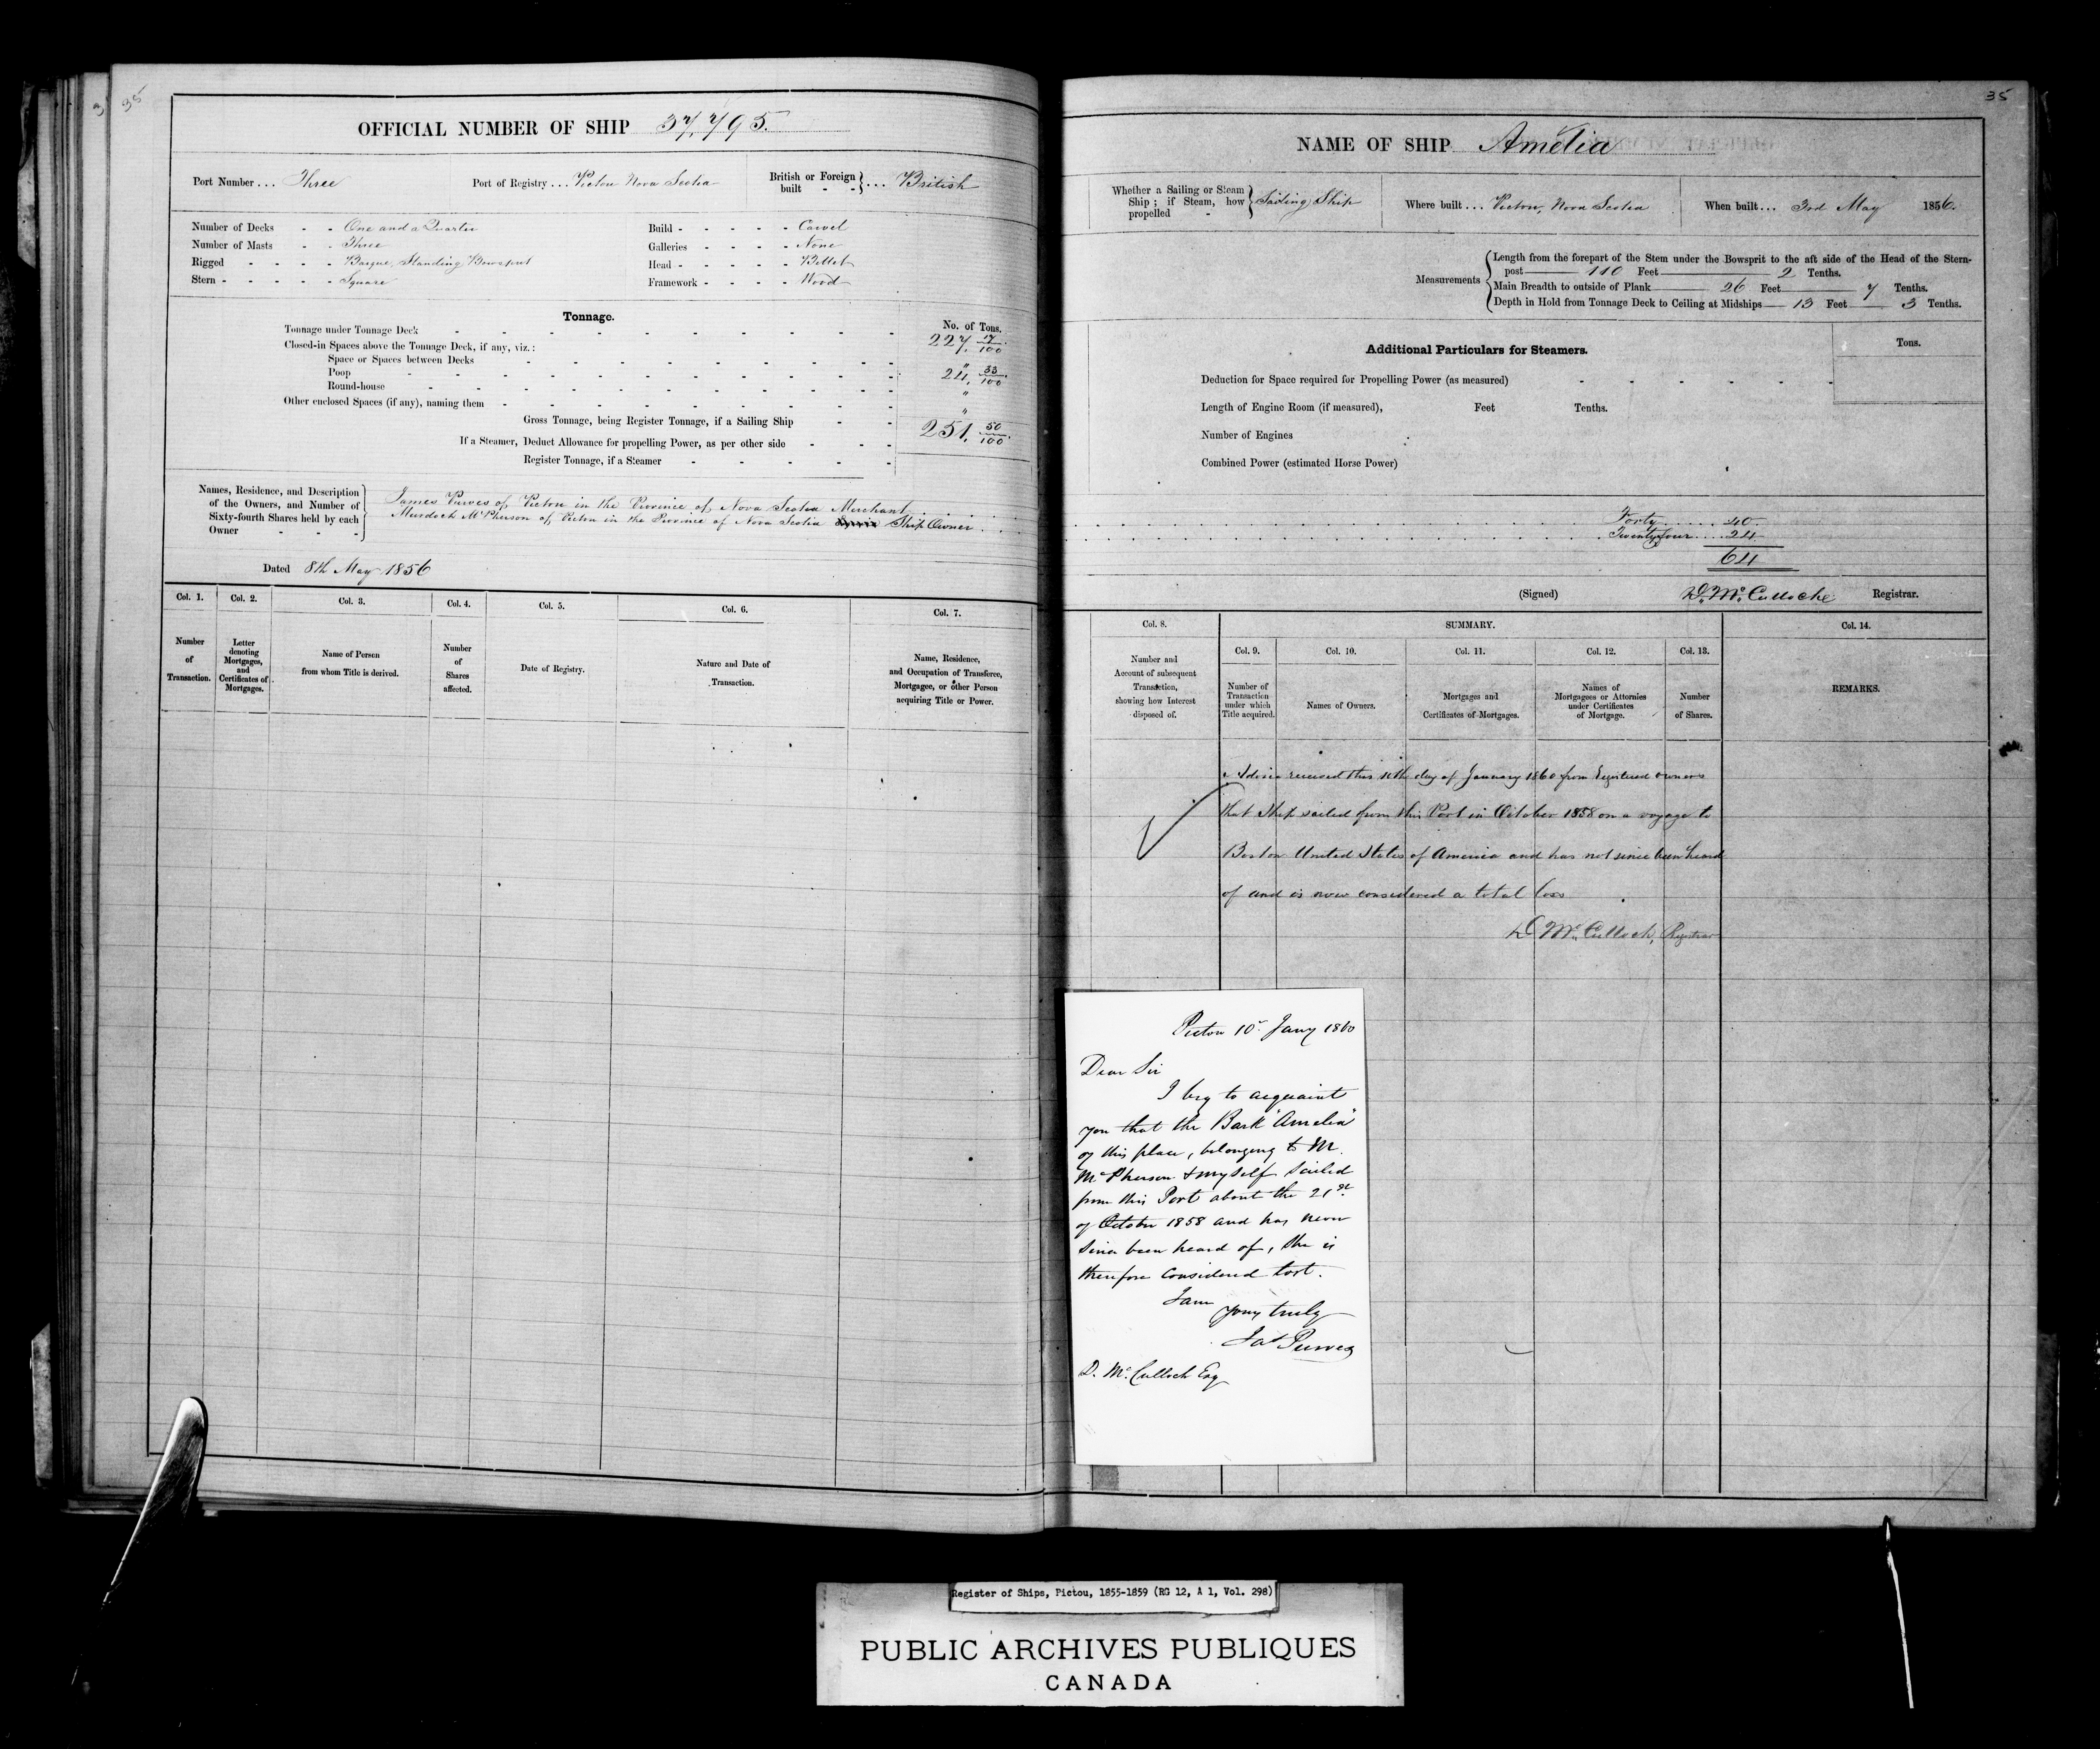 35
OFFICIAL NUMBER OF SHIP 37,795.
Port Number ... Three
Port of Registry ... Pictou Nova Scotia
British or Foreign built - - } ... British
Number of Decks - - One and a Quarter
Number of Masts - - Three
Rigged - - - - Barque, Standing Bowsprit
Stern - - - - - Square
Build - - - - - Carvel
Galleries - - - - None
Head - - - - - Billet
Framework - - - - Wood
Tonnage.
No. of Tons.
Tonnage under Tonnage Deck 227. 17/100
Closed-in Spaces above the Tonnage Deck, if any, viz.:
Space or Spaces between Decks "
Poop 24. 33/100
Round-house "
Other enclosed Spaces (if any), naming them "
Gross Tonnage, being Register Tonnage, if a Sailing Ship 251. 50/100
If a Steamer, Deduct Allowance for propelling Power, as per other side
Register Tonnage, if a Steamer
Names, Residence, and Description
of the Owners, and Number of
Sixty-fourth Shares held by each
Owner
James Purves of Pictou in the Province of Nova Scotia Merchant
Murdoch McPherson of Pictou in the Province of Nova Scotia Ship Owner
Dated 8th May 1856
Col. 1.
Number
of
Transaction.
Col. 2.
Letter
denoting
Mortgages,
and
Certificates of
Mortgages.
Col. 3.
Name of Person
from whom Title is derived.
Col. 4.
Number
of
Shares
affected.
Col. 5.
Date of Registry.
Col. 6.
Nature and Date of
Transaction.
Col. 7.
Name, Residence,
and Occupation of Transferee,
Mortgagee, or other Person
acquiring Title or Power.
35
NAME OF SHIP Amelia
Whether a Sailing or Steam
Ship; if Steam, how
propelled - } Sailing Ship
Where built ... Pictou, Nova Scotia
When built ... 3rd May 1856.
Measurements
Length from the forepart of the Stem under the Bowsprit to the aft side of the Head of the Stern-
post 110 Feet 2 Tenths.
Main Breadth to outside of Plank 26 Feet 7 Tenths.
Depth in Hold from Tonnage Deck to Ceiling at Midships 13 Feet 3 Tenths.
Additional Particulars for Steamers.
Tons.
Deduction for Space required for Propelling Power (as measured)
Length of Engine Room (if measured), Feet Tenths.
Number of Engines
Combined Power (estimated Horse Power)
Forty ..... 40.
Twenty four .... 24
64
(Signed) D. McCulloch Registrar.
Col. 8.
Number and
Account of subsequent
Transaction,
showing how Interest
disposed of.
SUMMARY.
Col. 9.
Number of
Transaction
under which
Title acquired.
Col. 10.
Names of Owners.
Col. 11.
Mortgages and
Certificates of Mortgages.
Col. 12.
Names of
Mortgagees or Attornies
under Certificates
of Mortgage.
Col. 13.
Number
of Shares.
Col. 14.
REMARKS.
Advice received this 10th day of January 1860 from Registered owners
that Ship sailed from this Port in October 1858 on a voyage to
Boston United States of America and has not since been heard
of and is now considered a total loss
D McCulloch, Registrar
Pictou 10th Jany 1860
Dear Sir
I beg to acquaint
you that the Bark "Amelia"
of this place, belonging to M.
McPherson & myself sailed
from this Port about the 21st
of October 1858 and has never
since been heard of, she is
therefore considered lost.
I am
yours truly
Jas Purves
D. McCulloch Esq
Register of Ships, Pictou, 1855-1859 (RG 12, A 1, Vol. 298)
PUBLIC ARCHIVES PUBLIQUES
CANADA